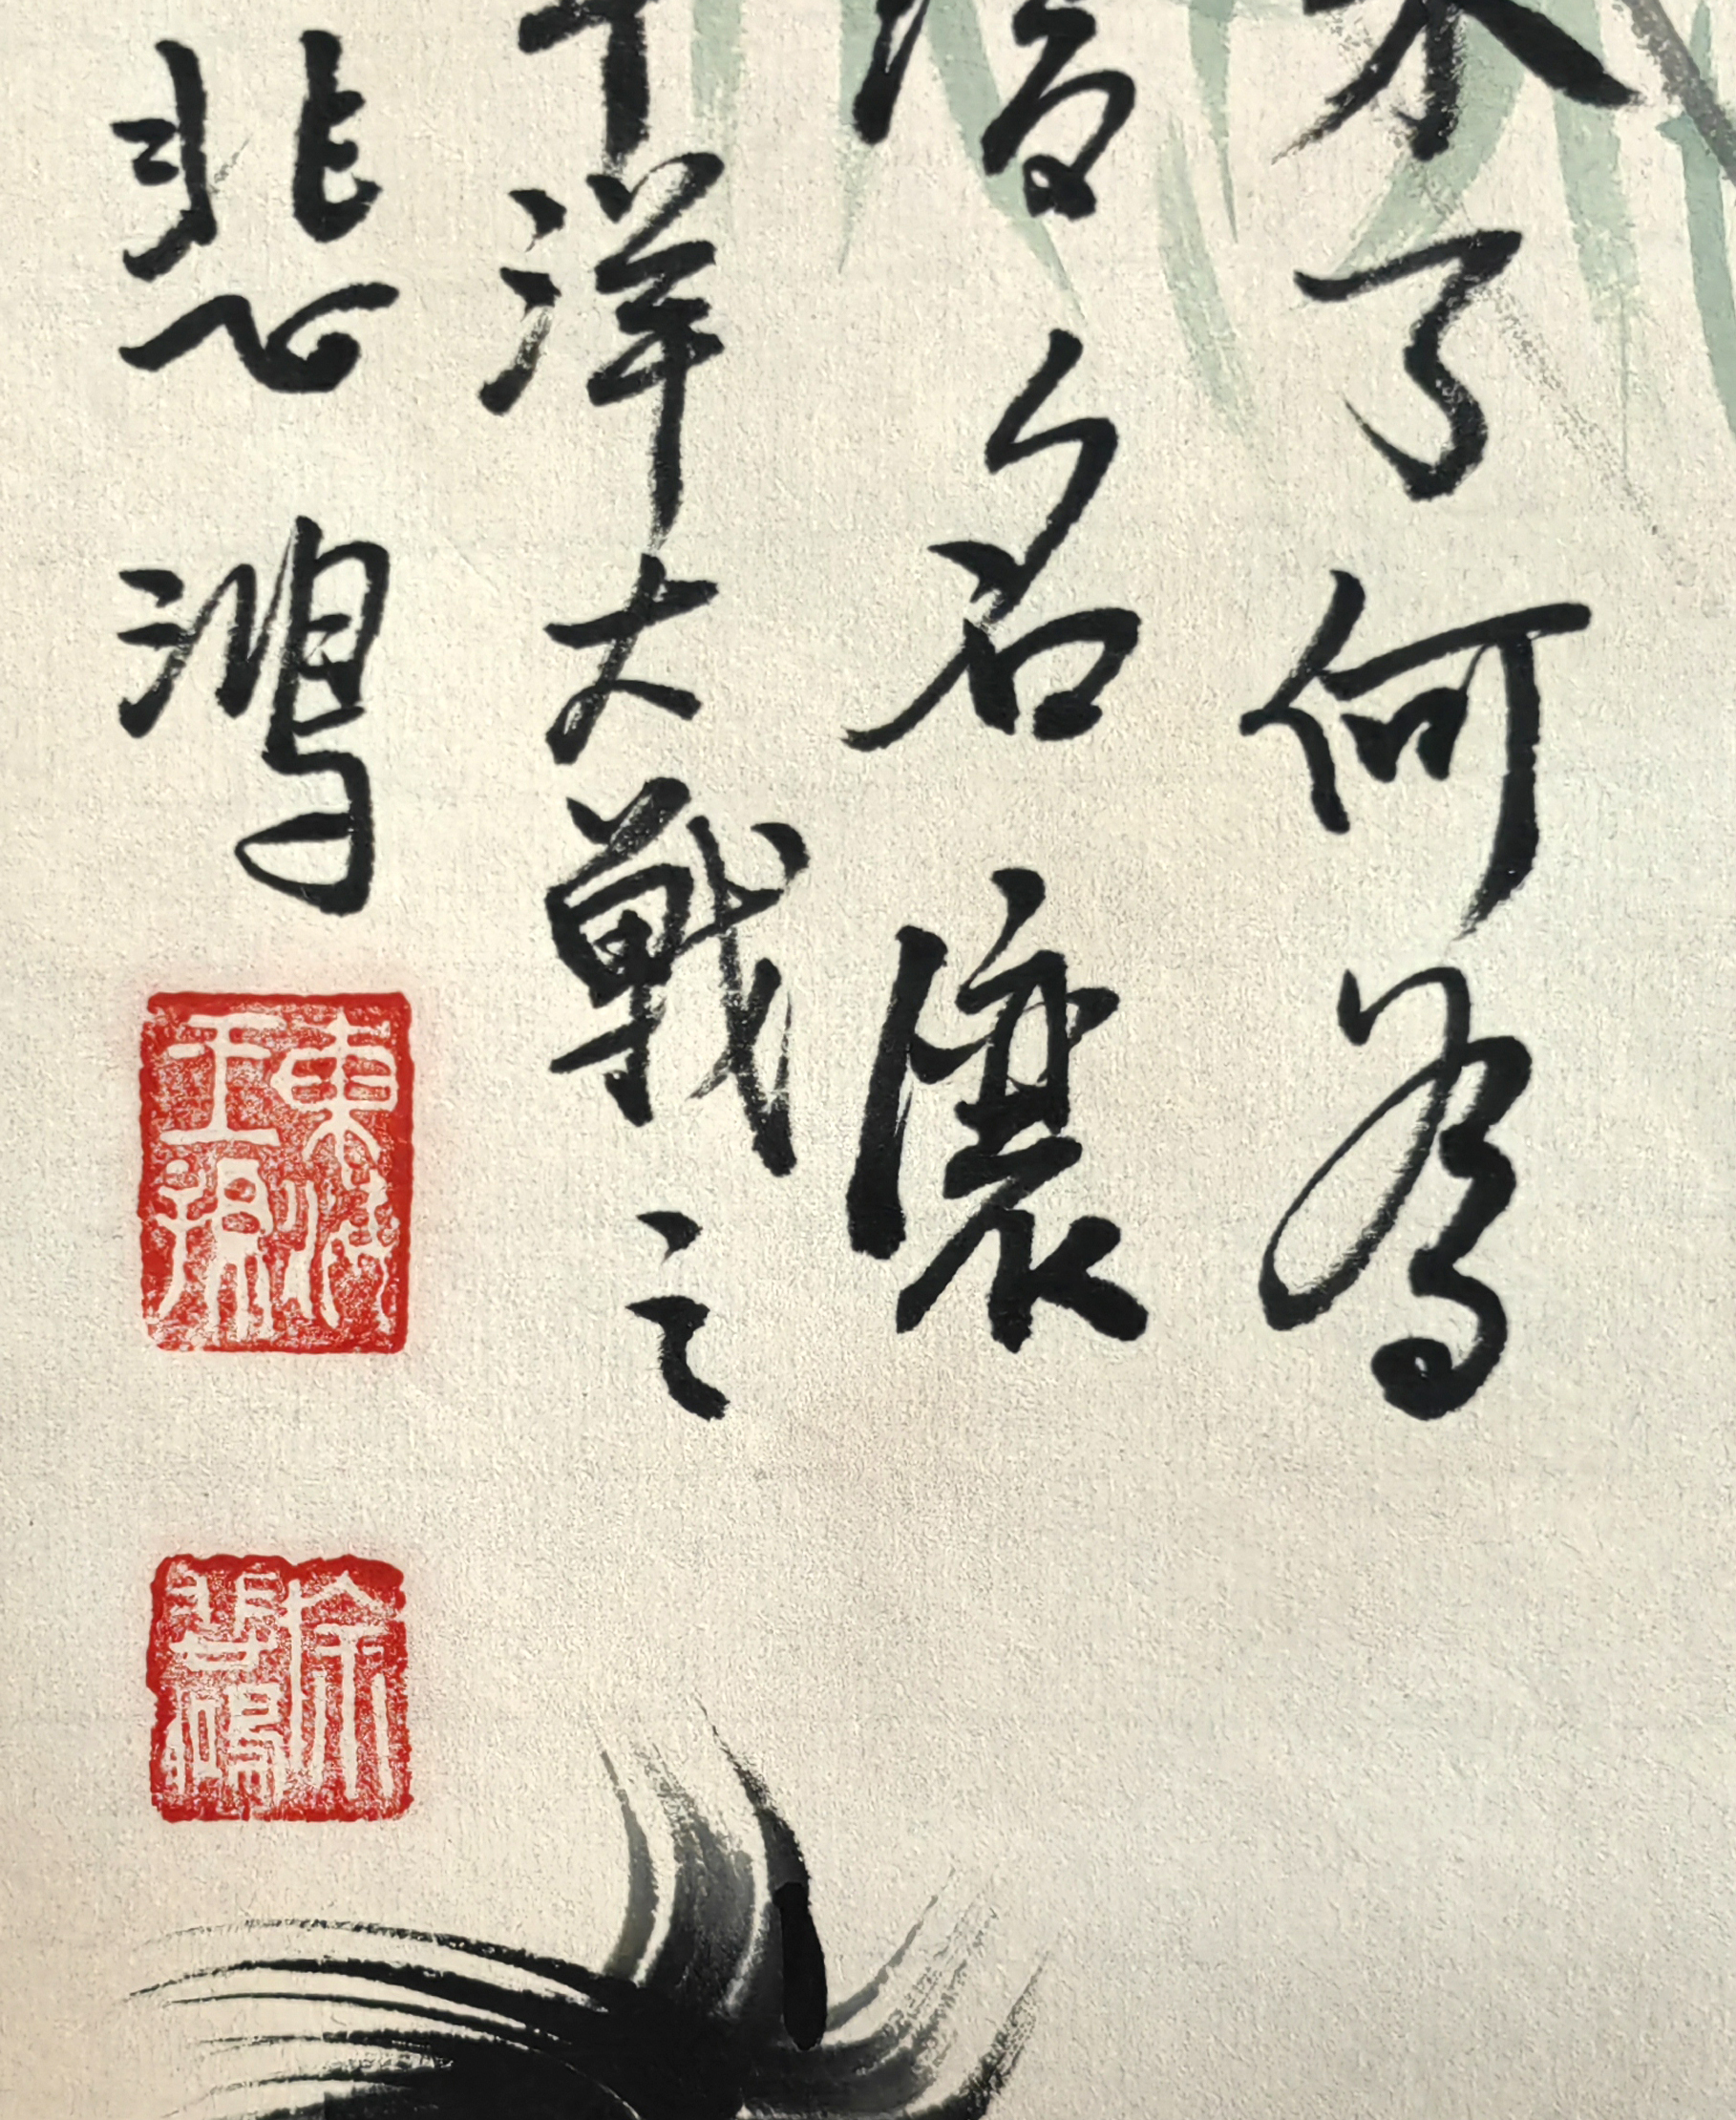 了何為
名懷
洋大戰之
悲鴻
東海王孫
徐悲鴻